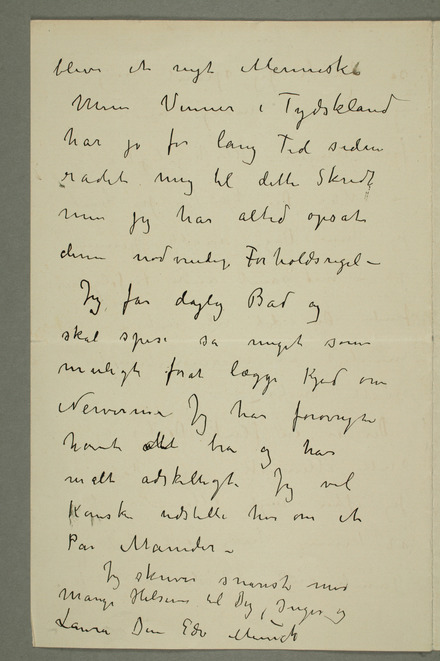 blive et nyt Menneske
Mine Venner i Tydskland
har jo for lang Tid siden
radet mig til dette Skridt
men jeg har altid opsat
denne nødvendig Forholdsregel –
Jeg får daglig Bad og
skal spise så meget som
muligt forat lægge Kjød om
Nerverne Jeg har forøvrigt
hørt alt bra og har
malt adskilligt Jeg vil
Kanske udstille her om et
Par Maaneder –
Jeg skriver snarest med
Mange Hilsener til Dig, Inger og
Laura Din Edv Munch